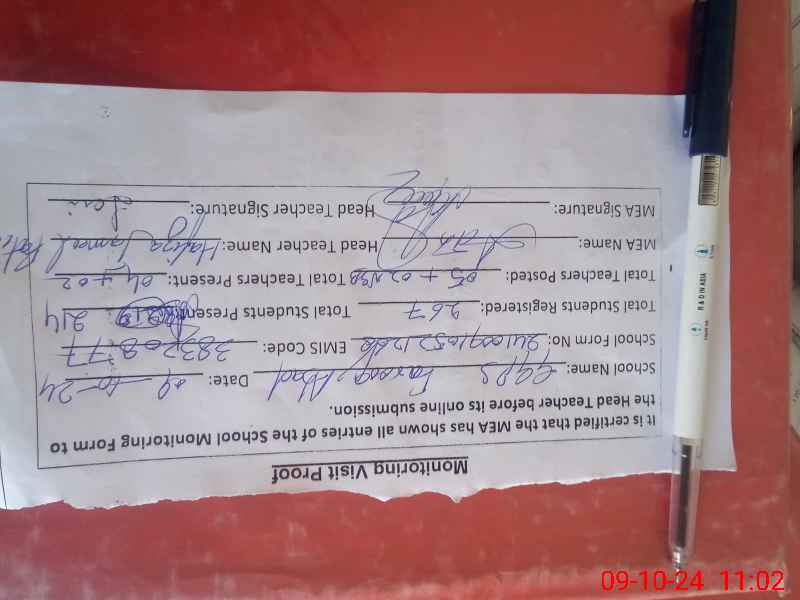 Monitoring Visit Proof
It is certified that the MEA has shown all entries of the School Monitoring Form to
the Head Teacher before its online submission.
School Name: GGPS Farooq Abad Date: 09-10-24
School Form No: EMIS Code: 38320877
Total Students Registered: 267 Total Students Present: 214
Total Teachers Posted: 05 + 02 NSB Total Teachers Present: 04 + 02
MEA Name: Head Teacher Name: Hafiza
MEA Signature: Head Teacher Signature:
R & D IN ASIA
09-10-24 11:02